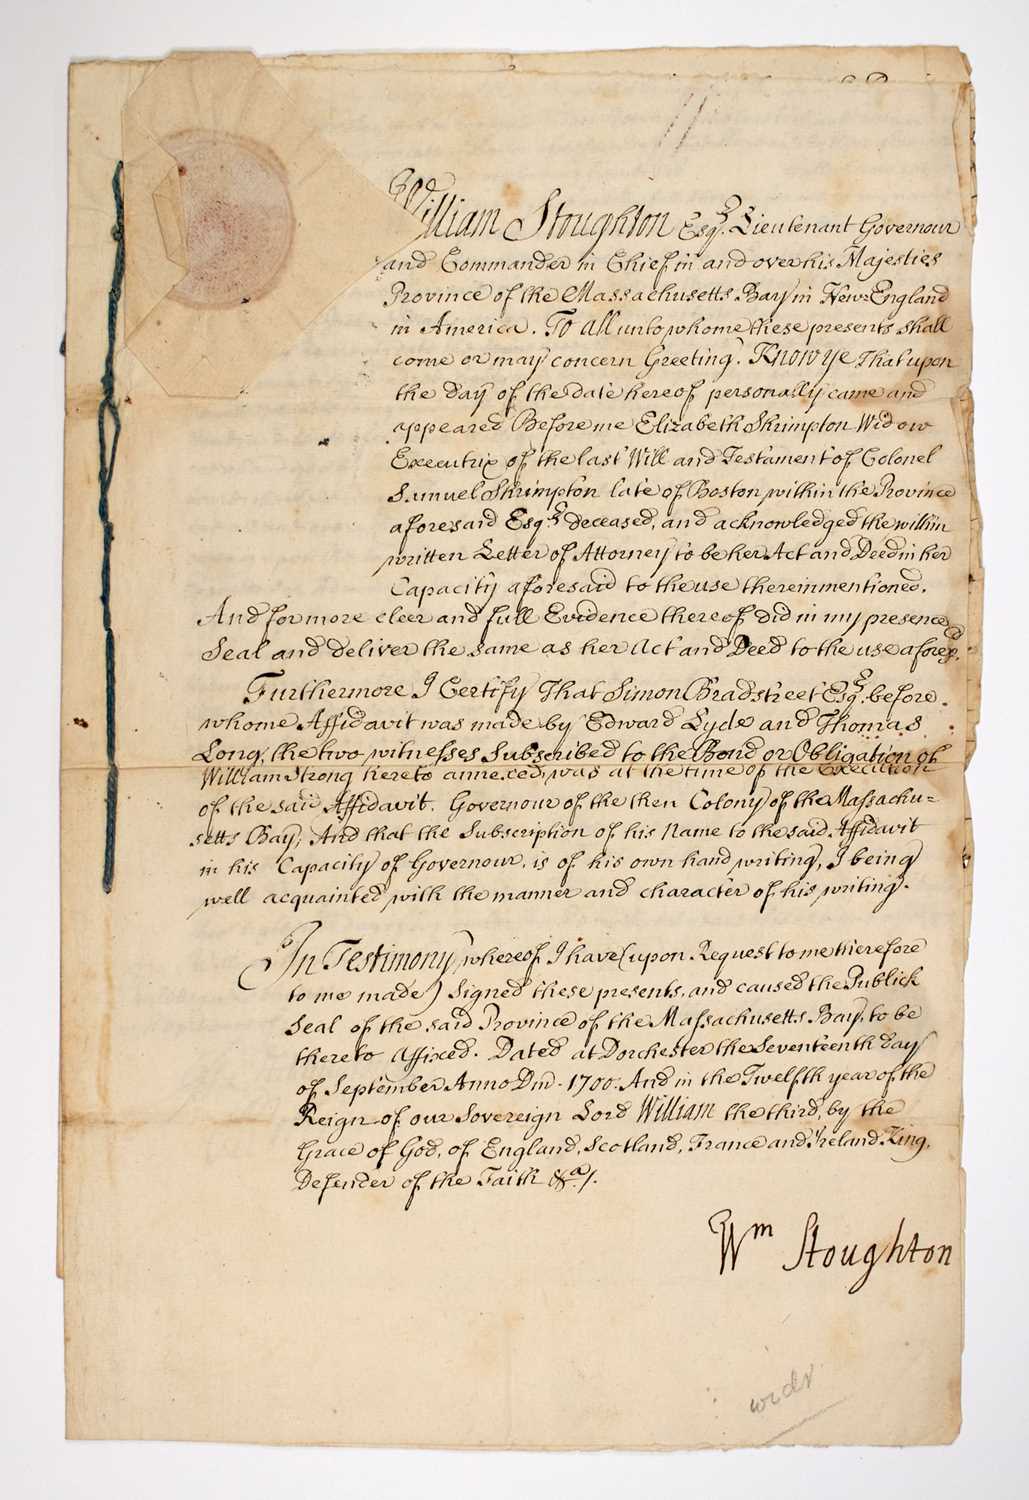 William Stoughton Esqr. Lieutenant Governour
and Commander in Chief in and over his Majesties
Province of the Massachusetts Bay in New=England
in America. To all unto whome these presents shall
come or may concern Greeting. Know ye That upon
the day of the date hereof personally came and
appeared Before me Elizabeth Shrimpton Widow
Executrix of the last Will and Testament of Colonel
Samuel Shrimpton late of Boston within the Province
aforesaid Esqr. deceased, and acknowledged the within
written Letter of Attorney to be her Act and Deed in her
Capacity aforesaid to the use therein mentioned.
And for more cleer and full Evidence thereof did in my presence
Seal and deliver the same as her Act and Deed to the use aforesd.
Furthermore I Certify That Simon Bradstreet Esqr. before
whome Affidavit was made by Edward Lyde and Thomas
Long, the two witnesses Subscribed to the Bond or Obligation of
William Strong hereto annexed, was at the time of the Execution
of the said Affidavit. Governour of the then Colony of the Massachu=
setts Bay; And that the Subscription of his Name to the said Affidavit
in his Capacity of Governour, is of his own hand writing, I being
well acquainted with the manner and character of his writing.
In Testimony whereof I have (upon Request to me therefore
to me made) Signed these presents, and caused the Publick
Seal of the said Province of the Massachusetts Bay, to be
thereto Affixed. Dated at Dorchester the Seventeenth day
of September Anno Dm. 1700. And in the Twelfth year of the
Reign of our Sovereign Lord William the third, by the
Grace of God, of England, Scotland, France and Ireland King,
Defender of the Faith &ca.
Wm Stoughton